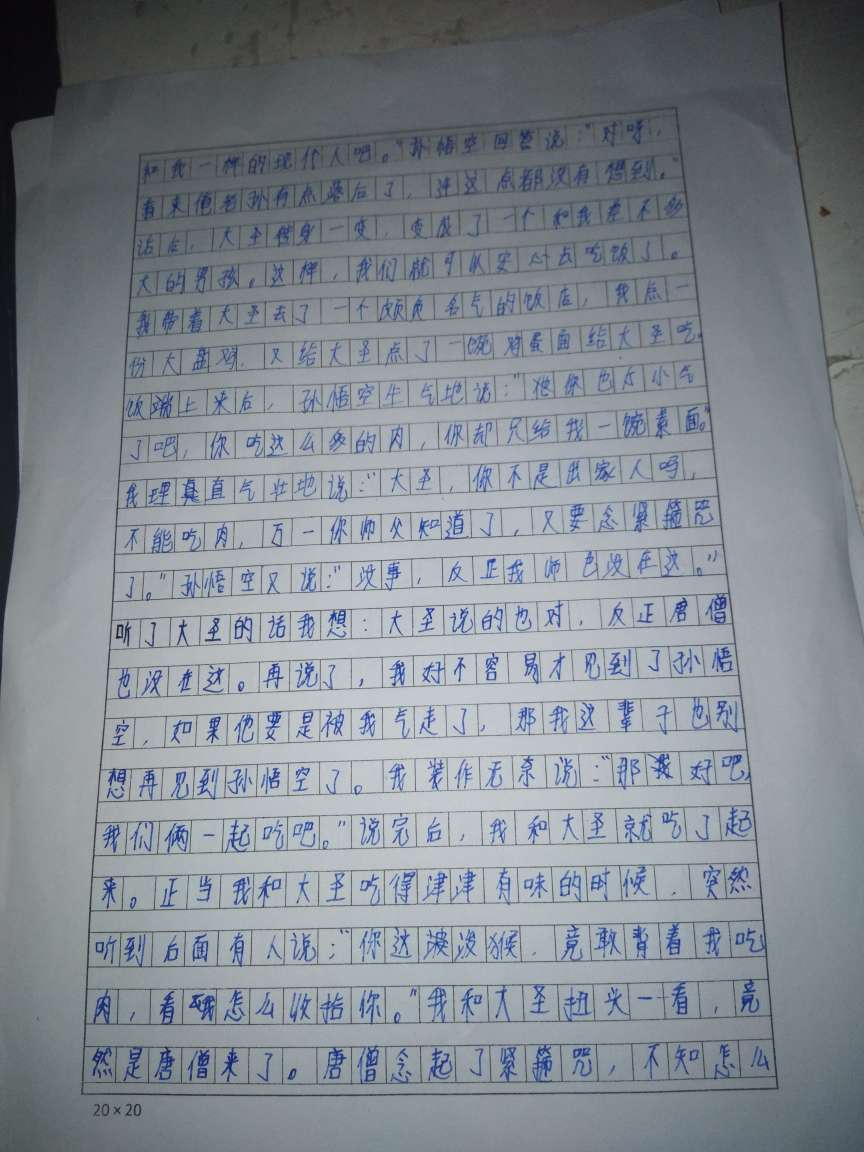 和我一样的现代人吧。"孙悟空回答说:"对呀,
看来俺老孙有点落后了,连这点都没有想到。"
话后,大圣转身一变,变成了一个和我差不多
大的男孩。这样,我们就可以安心去吃饭了。
我带着大圣去了一个颇负名气的饭店,我点一
份大盘鸡,又给大圣点了一碗鸡蛋面给大圣吃。
饭端上来后,孙悟空生气地说:"你也太小气
了吧,你吃这么多的肉,你却只给我一碗素面。"
我理直气壮地说:"大圣,你不是出家人吗,
不能吃肉,万一你师父知道了,又要念紧箍咒
了。"孙悟空又说:"没事,反正我师也没在这。"
听了大圣的话我想:大圣说的也对,反正唐僧
也没在这。再说了,我好不容易才见到了孙悟
空,如果他要是被我气走了,那我这辈子也别
想再见到孙悟空了。我装作无奈说:"那好吧,
我们俩一起吃吧。"说完后,我和大圣就吃了起
来。正当我和大圣吃得津津有味的时候,突然
听到后面有人说:"你这泼猴,竟敢背着我吃
肉,看我怎么收拾你。"我和大圣扭头一看,竟
然是唐僧来了。唐僧念起了紧箍咒,不知怎么
20×20